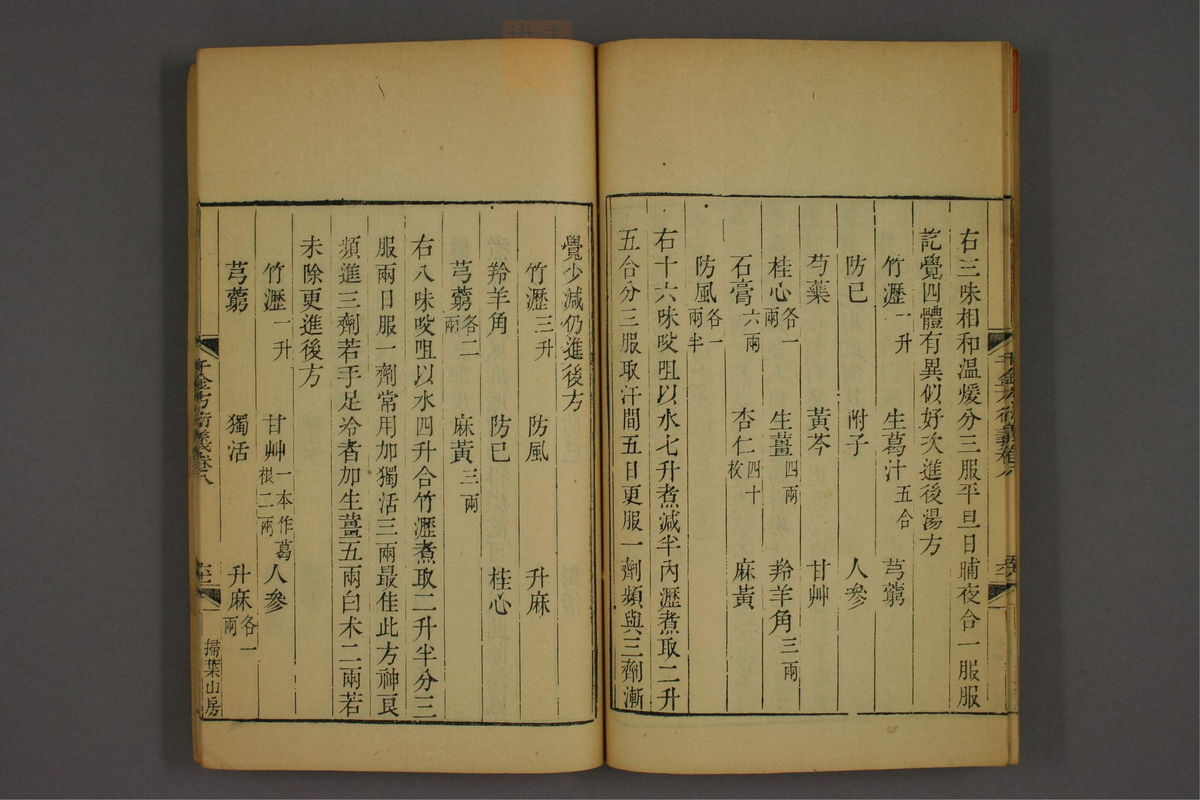 右三味相和温煖分三服平旦日晡夜合一服服
訖覺四體有異似好次進後湯方
竹瀝一升 生葛汁五合 芎藭
防已 附子 人參
芍藥 黃芩 甘艸
桂心各一兩 生薑四兩 羚羊角三兩
石膏六兩 杏仁四十枚 麻黃
防風各一兩半
右十六味㕮咀以水七升煮減半內瀝煮取二升
五合分三服取汗間五日更服一劑頻與三劑漸
覺少減仍進後方
竹瀝三升 防風 升麻
羚羊角 防已 桂心
芎藭各二兩 麻黃三兩
右八味㕮咀以水四升合竹瀝煮取二升半分三
服兩日服一劑常用加獨活三兩最佳此方神良
頻進三劑若手足冷者加生薑五兩白朮二兩若
未除更進後方
竹瀝一升 甘艸一本作葛根二兩 人參
芎藭 獨活 升麻各一兩
千金方衍義卷八
掃葉山房